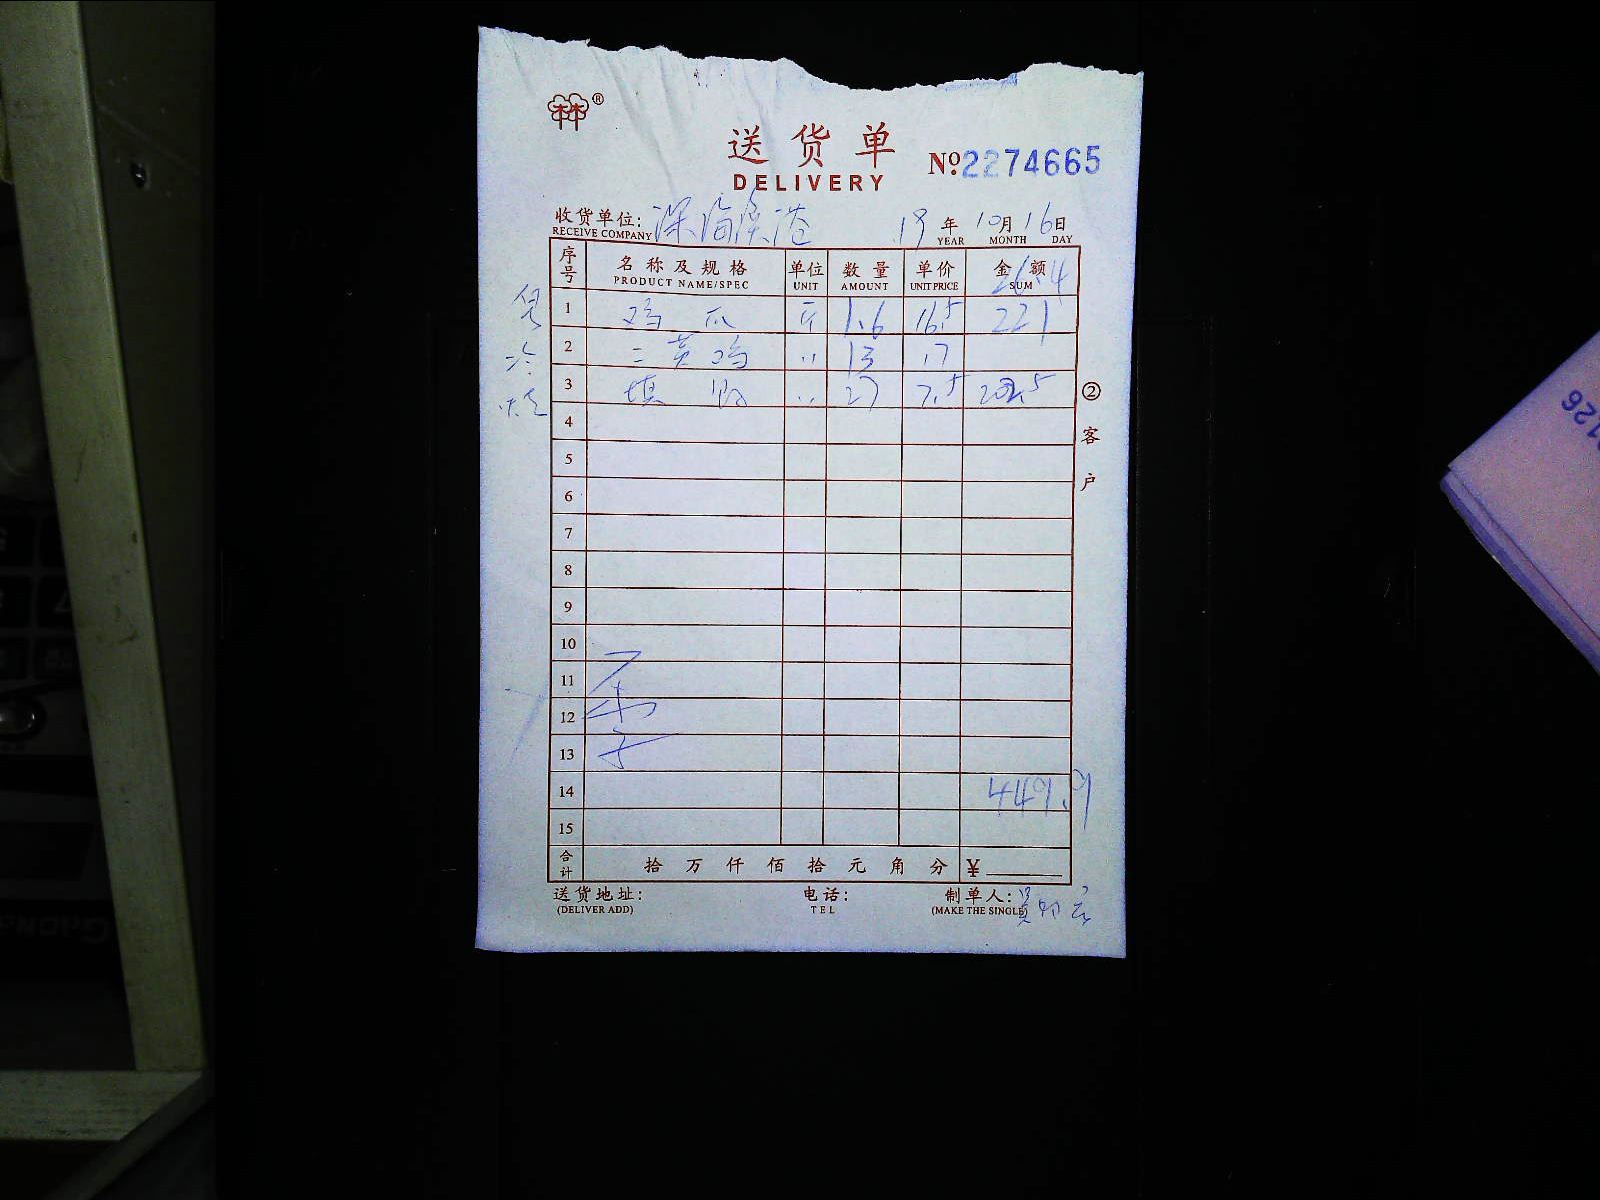 送货单
DELIVERY
№ 2274665
收货单位: 深海渔港 19年 10月 16日
RECEIVE COMPANY YEAR MONTH DAY
序号 名称及规格 单位 数量 单价 金额
PRODUCT NAME/SPEC UNIT AMOUNT UNIT PRICE SUM
26.4
1 鸡爪 斤 1.6 16.5 221
2 三黄鸡 〃 13 17
3 填鸭 〃 27 7.5 202.5
② 客户
4
5
6
7
8
9
10
11
12
13
14 449.9
15
合计 拾 万 仟 佰 拾 元 角 分 ¥
送货地址: 电话: 制单人:
(DELIVER ADD) TEL (MAKE THE SINGLE)